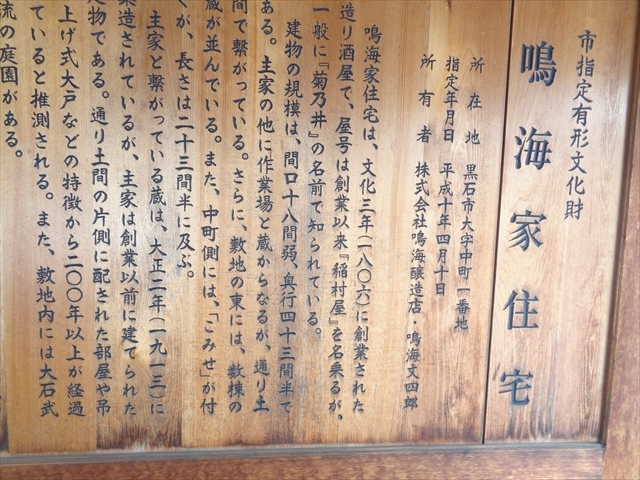 市指定有形文化財
鳴海家住宅
所在地 黒石市大字中町一番地
指定年月日 平成十年四月十日
所有者 株式会社鳴海醸造店・鳴海文四郎
鳴海家住宅は、文化三年(一八〇六)に創業された
造り酒屋で、屋号は創業以来『稲村屋』を名乗るが、
一般に『菊乃井』の名前で知られている。
建物の規模は、間口十八間弱、奥行四十三間半で
ある。主家の他に作業場と蔵からなるが、通り土
間で繋がっている。さらに、敷地の東には、数棟の
蔵が並んでいる。また、中町側には、「こみせ」が付
くが、長さは二十三間半に及ぶ。
主家と繋がっている蔵は、大正二年(一九一三)に
築造されているが、主家は創業以前に建てられた
建物である。通り土間の片側に配された部屋や吊
上げ式大戸などの特徴から二〇〇年以上が経過
ていると推測される。また、敷地内には大石武
流の庭園がある。